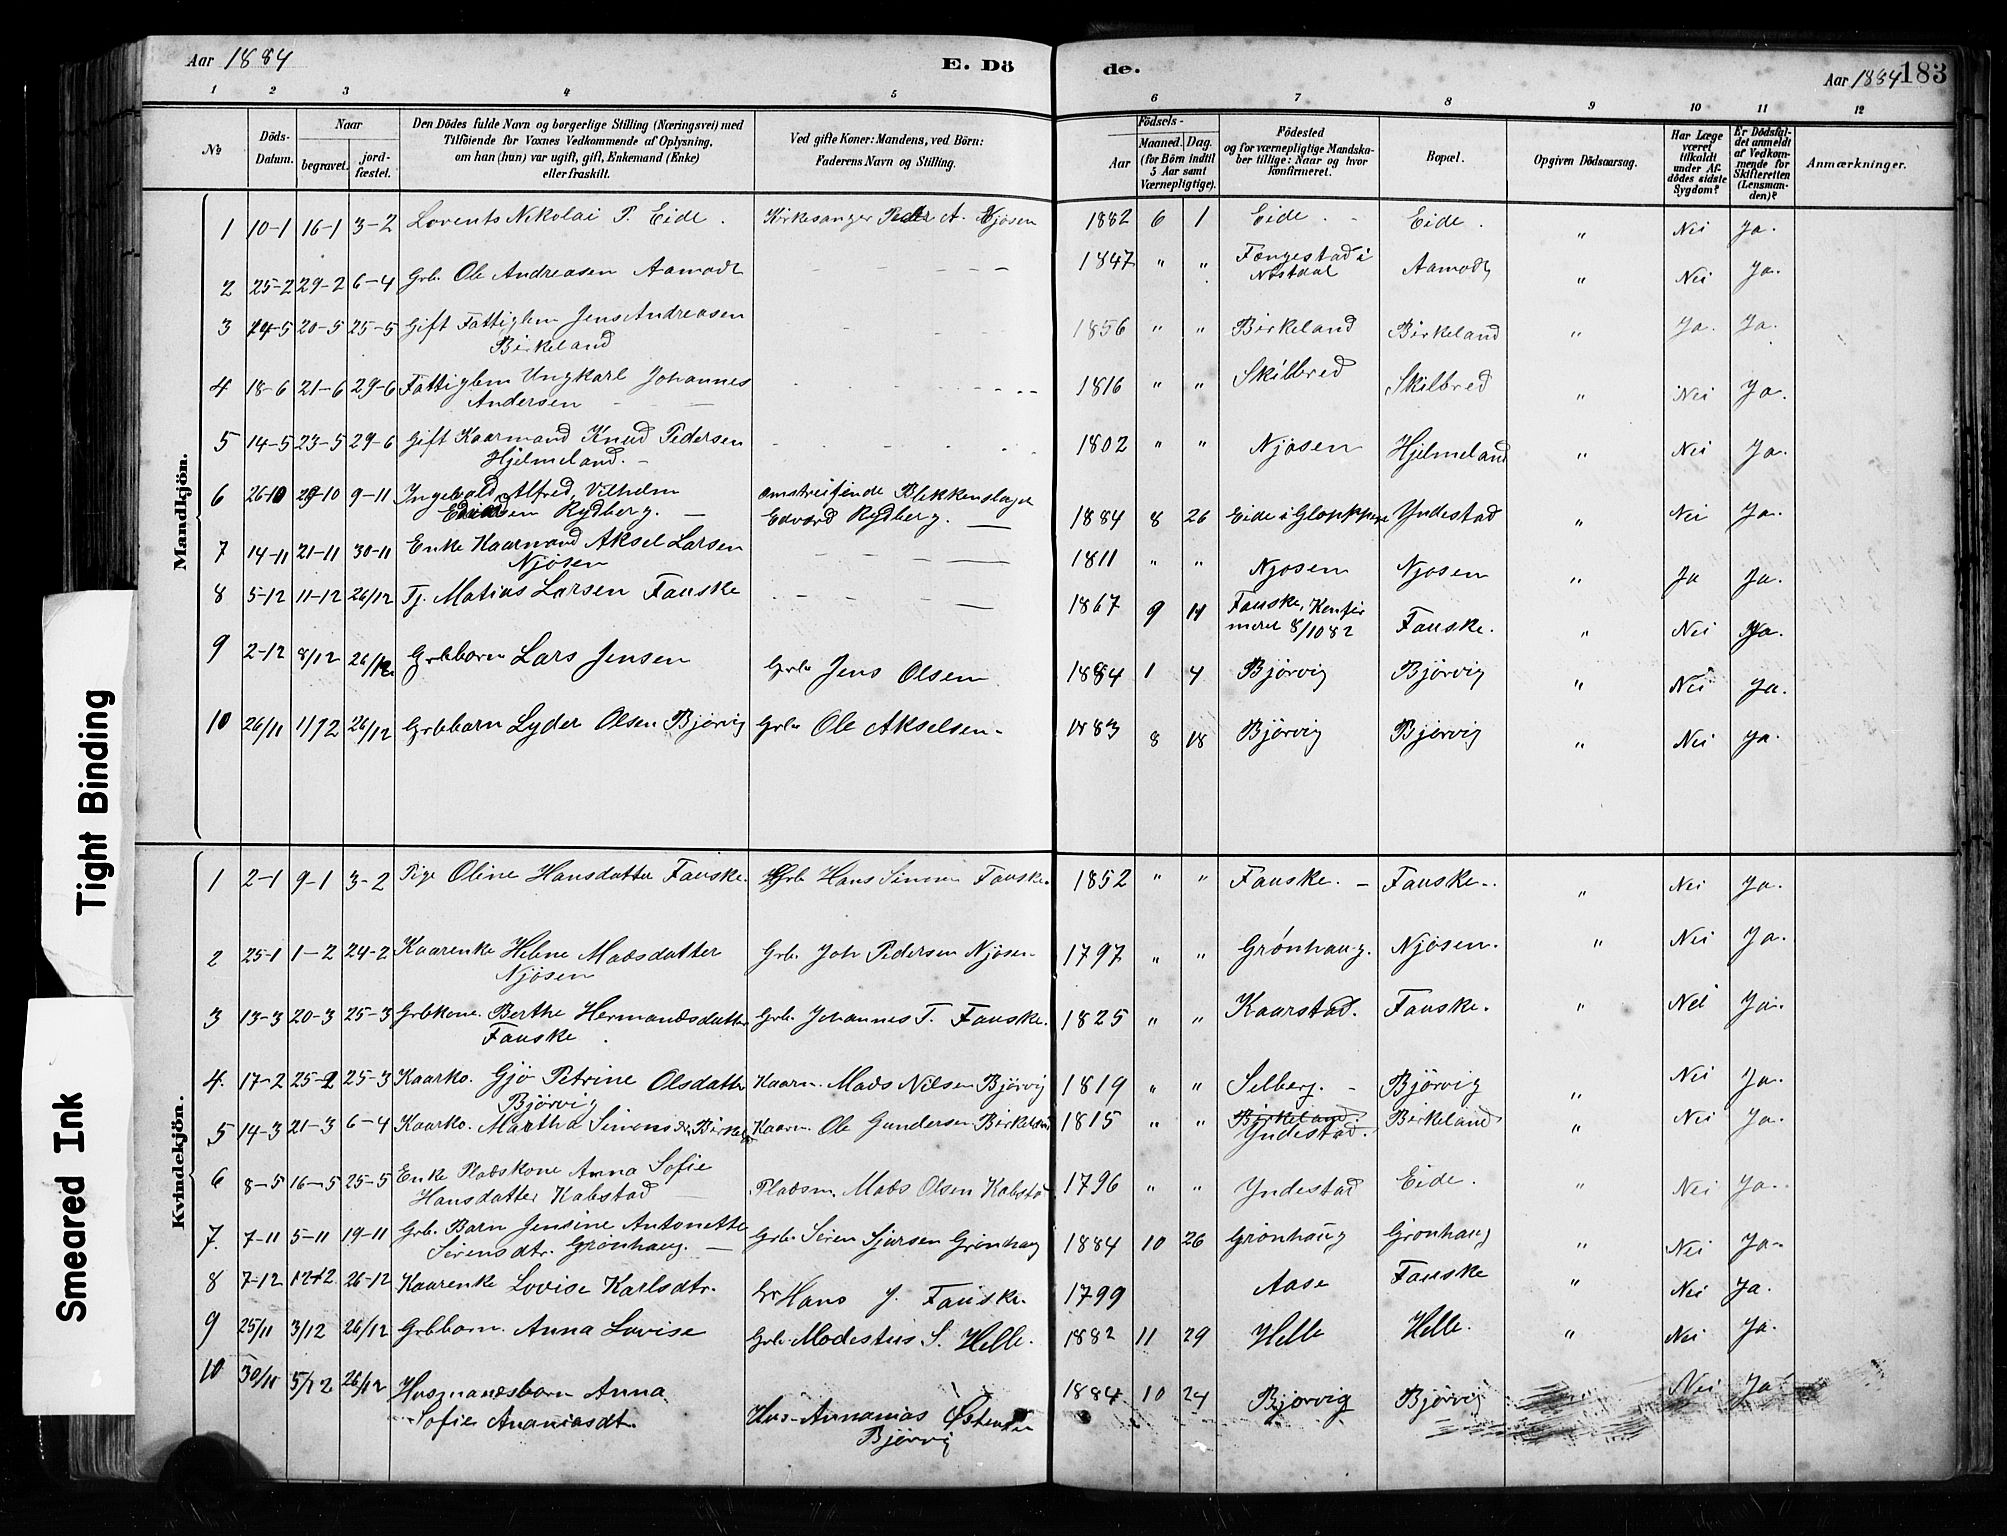 Aar 1884 E. Dö de. Aar 1884 183
1 2 3 4 5 6 7 8 9 10 11 12
No Döds-Datum. Naar begravet. jord-fæstet. Den Dödes fulde Navn og borgerlige Stilling (Næringsvei) med Tilföiende for Voxnes Vedkommende af Oplysning, om han (hun) var ugift, gift, Enkemand (Enke) eller fraskilt. Ved gifte Koner: Mandens, ved Börn: Faderens Navn og Stilling. Födsels- Aar Maaned. Dag. (for Börn indtil 5 Aar samt Værnepligtige). Födested og for værnepligtige Mandskaber tillige: Naar og hvor konfirmeret. Bopæl. Opgiven Dödsaarsag. Har Læge været tilkaldt under Afdödes sidste Sygdom? Er Dödsfaldet anmeldt af Vedkommende for Skifteretten (Lensmanden)? Anmærkninger.
Mandkjön.
1 10-1 16-1 3-2 Lorents Nikolai P. Eide. Kirkesanger Peder A. Njøsen 1882 6 1 Eide. - Eide. " Nei Ja.
2 25-2 29-2 6-4 Grb. Ole Andreasen Aamodt - - - - - 1847 " " Fængestad i Nøstdal Aamodt " Nei Ja.
3 14-5 20-5 25-5 Gift Fattiglem Jens Andreasen 1856 " " Birkeland Birkeland " Ja. Ja.
Birkeland
4 18-6 21-6 29-6 Fattiglem Ungkarl Johannes 1816 " " Skilbred Skilbred " Nei Ja.
Andersen - -
5 14-5 23-5 29-6 Gift Kaarmand Knud Pedersen 1802 " " Njøsen Hjelmeland " Nei Ja.
Hjelmeland. -
6 26-10 29-10 9-11 Ingevald, Alfred, Vilhelm omstreifende Blikkenslager
Rydberg. - Edvard Rydberg. - 1884 8 26 Eide i Gloppen Yndestad " Nei Ja.
7 14-11 21-11 30-11 Enke Kaarmand Aksel Larsen 1811 " " Njøsen Njøsen " Ja Ja.
Njøsen
8 5-12 11-12 26/12 Tj. Matias Larsen Fauske 1867 9 11 Fauske, Konfirmeret 8/10 82 Fauske. " Nei Ja.
9 2-12 8/12 26/12 Grbbarn Lars Jensen Grbr Jens Olsen 1884 1 4 Bjørvig Bjørvig " Nei Ja.
10 26/11 1/12 26/12 Grbbarn Lyder Olsen Bjørvig Grbr Ole Akselsen - 1883 8 18 Bjørvig Bjørvig " Nei Ja.
Kvindekjön.
1 2-1 9-1 3-2 Pige Oline Hansdatter Fauske. Grb. Hans Simon Fauske. 1852 " " Fauske. - Fauske. - " Nei Ja.
2 25-1 1-2 24-2 Kaarenke Helene Madsdatter Grb. Joh Pedersen Njøsen 1797 " " Grönhaug. Njøsen. " Nei Ja.
Njøsen
3 13-3 20-3 25-3 Grbkone. Berthe Hermandsdatter Grb. Johannes T. Fauske. 1825 " " Kaarstad. Fauske. " Nei Ja.
Fauske.
4. 17-2 25-2 25-3 Kaarko. Gjø Petrine Olsdatter Kaarm. Mads Nilsen Bjørvig 1819 " " Selberg. - Bjørvig " Nei Ja.
Bjørvig
5 14-3 21-3 6-4 Kaarko. Martha Simonsdr. Kaarm. Ole Gundersen Birkeland 1815 " " Birkeland. Birkeland " Nei Ja.
Yndestad.
6 8-5 16-5 25-5 Enke Pladskone Anna Sofie Pladsm. Mads Olsen Kabstad 1796 " " Yndestad Eide. " Nei Ja.
Hansdatter Kabstad -
7. 7-11 5-11 19-11 Grb. Barn Jensine Antonette Grb. Sören Sjursen Grönhaug 1884 10 26 Grönhaug Grönhaug " Nei Ja.
Sörensdtr. Grönhaug. -
8 7-12 12-12 26-12 Kaarenke Lovise Karlsdtr. Gr Hans J. Fauske. 1799 Aase Fauske " Nei Ja.
9 25/11 3/12 26/12 Grbbarn. Anna Lovise Grb. Modestus S. Helle. 1882 11 29 Helle Helle. " Nei Ja.
10 30/11 5/12 26/12 Husmandsbarn Anna 1884 10 24 Bjørvig Bjørvig Nei Ja
Sofie Ananiasdt. Hus. Annanias
Bjørvig
Tight Binding
Smeared Ink